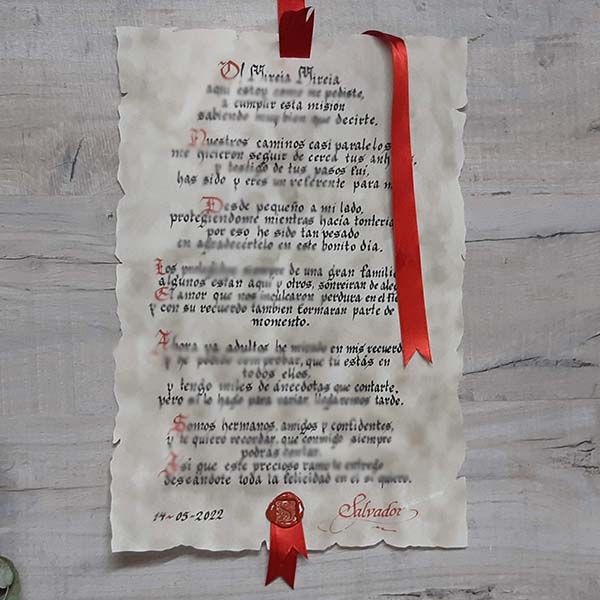 O! Mireia Mireia
aquí estoy como me pediste,
a cumplir esta misión
sabiendo muy bien que decirte.
Nuestros caminos casi paralelos
me hicieron seguir de cerca tus anh
y testigo de tus pasos fui,
has sido y eres un referente para m
Desde pequeño a mi lado,
protegiéndome mientras hacía tontería
por eso he sido tan pesado
en agradecértelo en este bonito día.
Los siempre de una gran familia
algunos están aquí y otros, sonreirán de aleg
El amor que nos inculcaron perdura en el
y con su recuerdo también formarán parte de
momento.
Ahora ya adultos he mirado en mis recuerd
y he podido comprobar, que tú estás en
todos ellos,
y tengo miles de anécdotas que contarte,
pero si lo hago para variar llegaremos tarde.
Somos hermanos, amigos y confidentes,
y te quiero recordar, que conmigo siempre
podrás contar.
Así que este precioso ramo te entrego
deseándote toda la felicidad en el sí quiero.
14-05-2022
Salvador